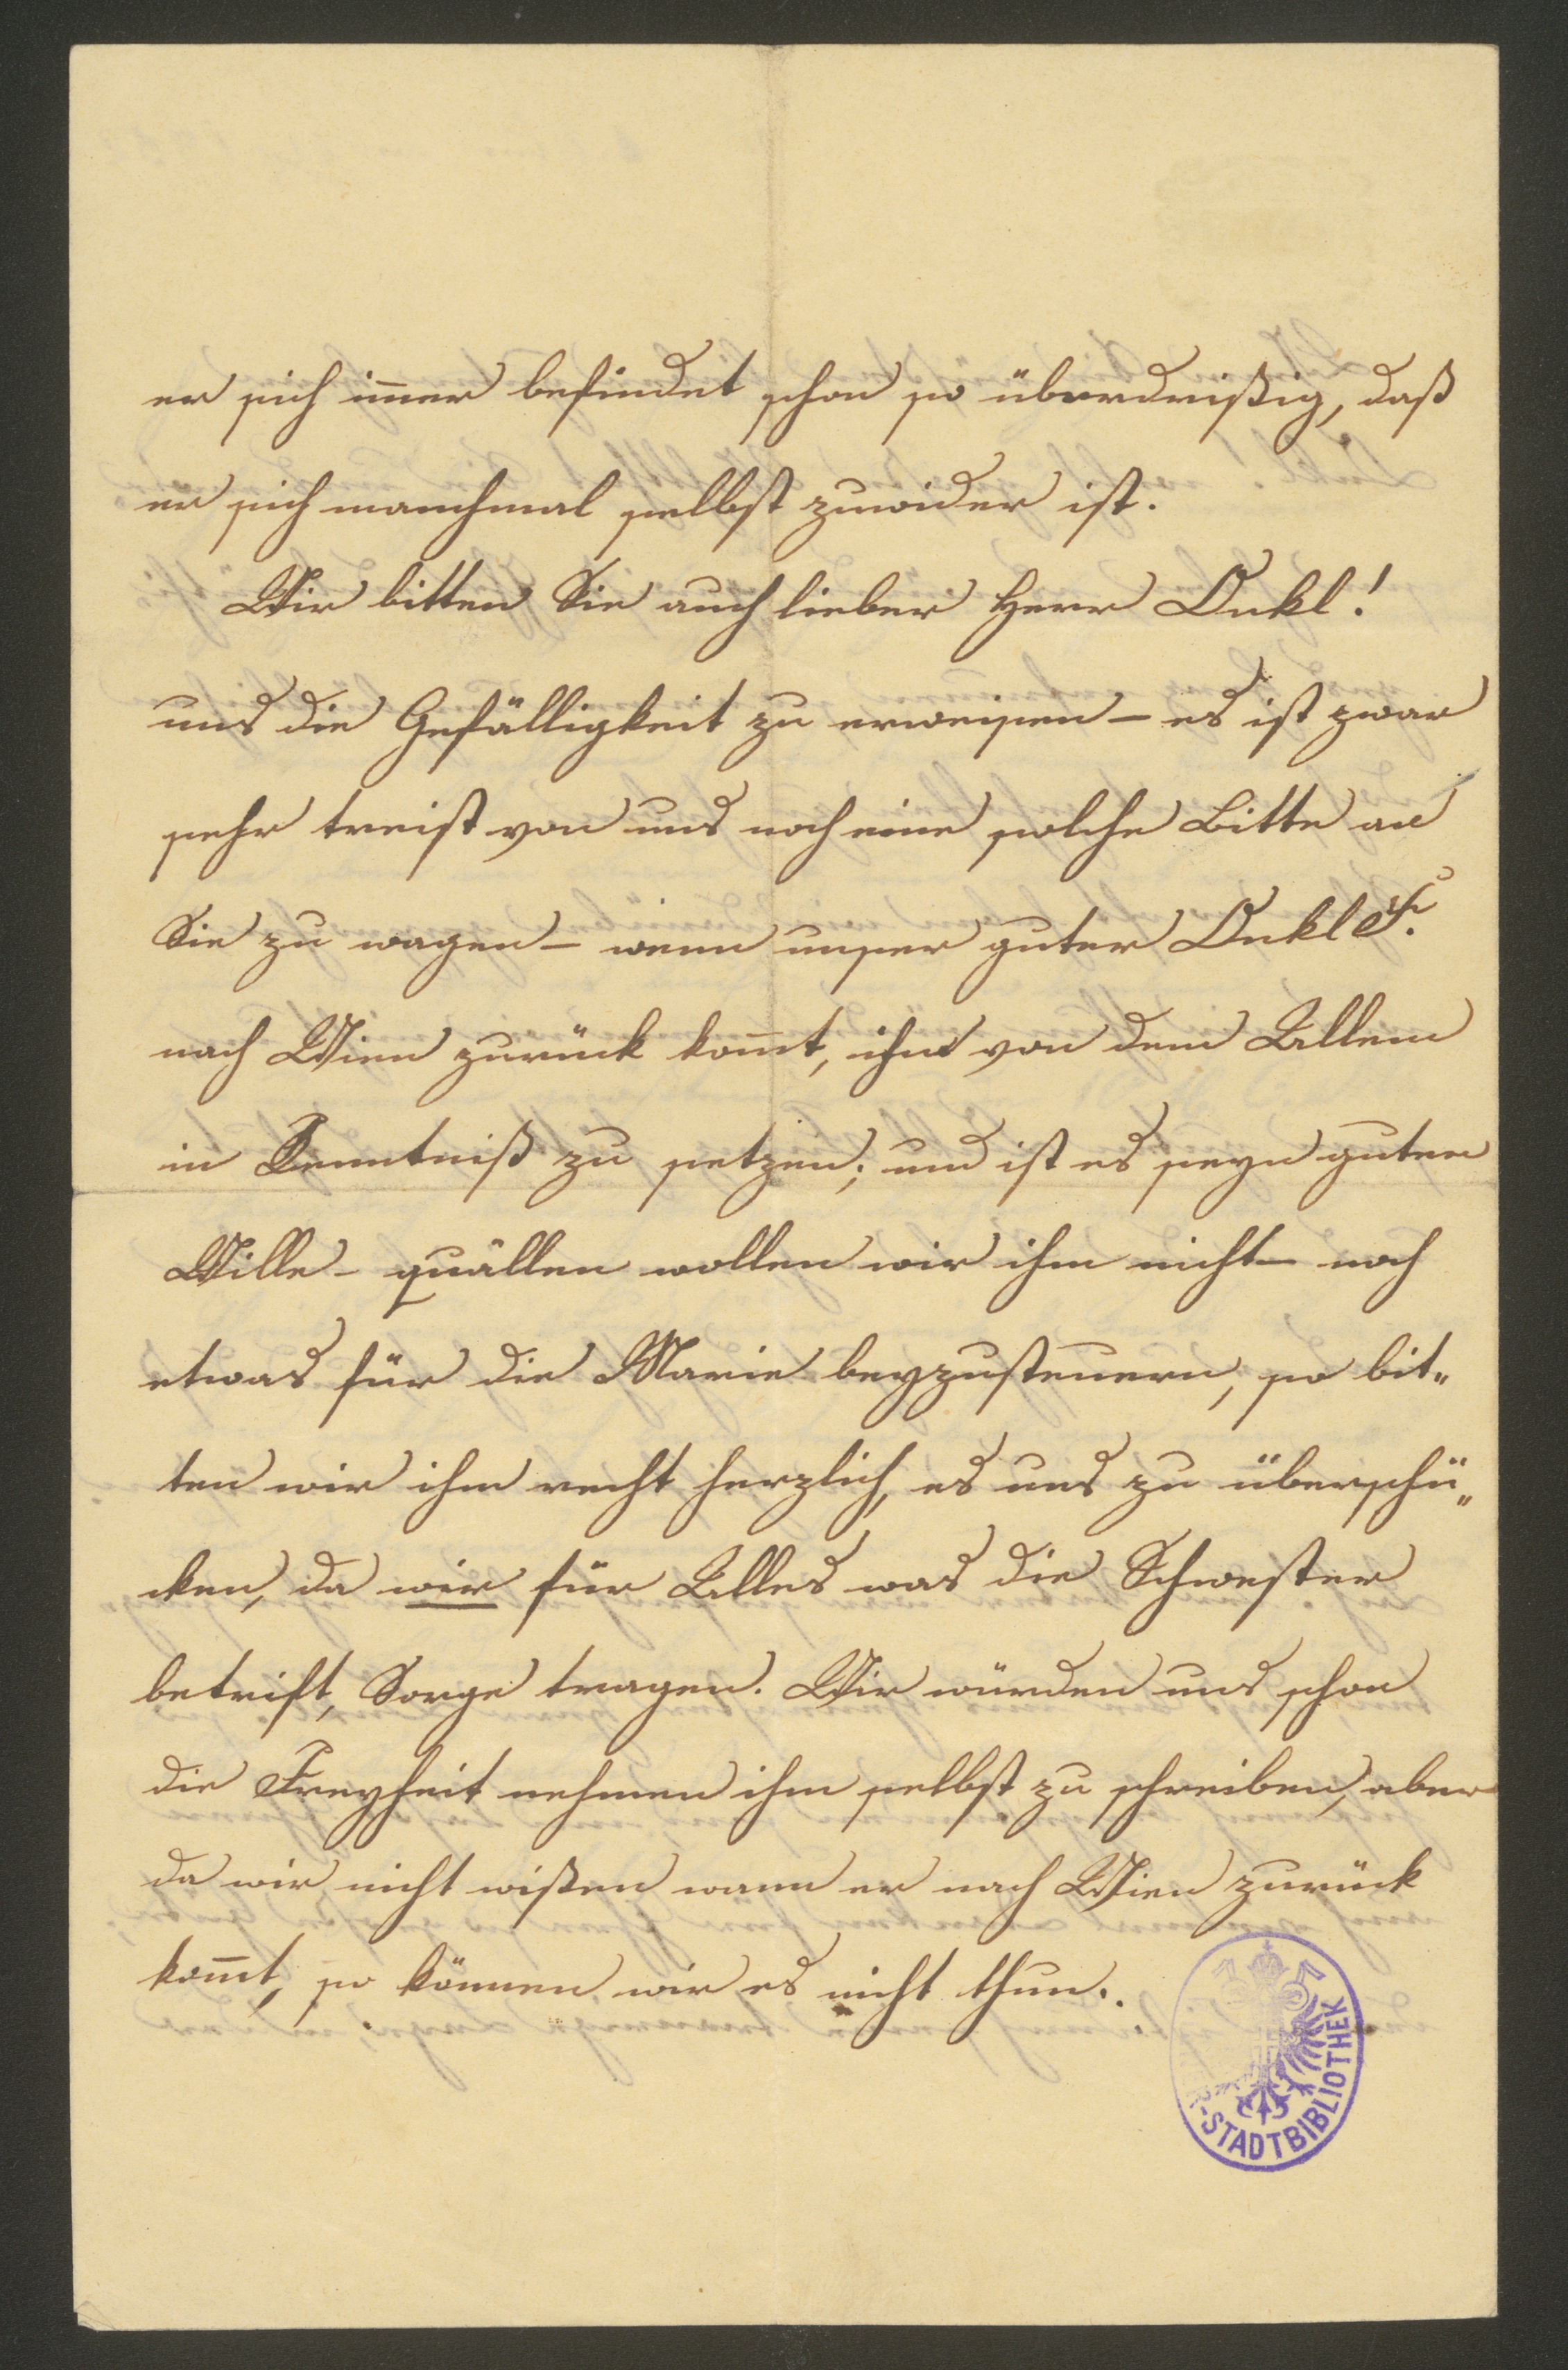 er sich im̄er befindet schon so überdrißig, daß
er sich manchmal selbst zuwider ist.
Wir bitten Sie auch lieber Herr Onkl!
uns die Gefälligkeit zu erweisen – es ist zwar
sehr treist von uns noch eine solche Bitte an
Sie zu wagen – wenn unser guter Onkl F.
nach Wien zurück kom̄t, ihn von dem Allem
in Kenntniß zu setzen; und ist es seyn guter
Wille – quällen wollen wir ihm nicht – noch
etwas für die Marie beyzusteuern, so bit„
ten wir ihm recht herzlich, es uns zu überschü„
cken, da wir für Alles was die Schwester
betrift, Sorge tragen. Wir würden uns schon
die Freyheit nehmen ihm selbst zu schreiben, aber
da wir nicht wißen wann er nach Wien zurück
kom̄t, so können wir es nicht thun.
-STADTBIBLIOTHEK